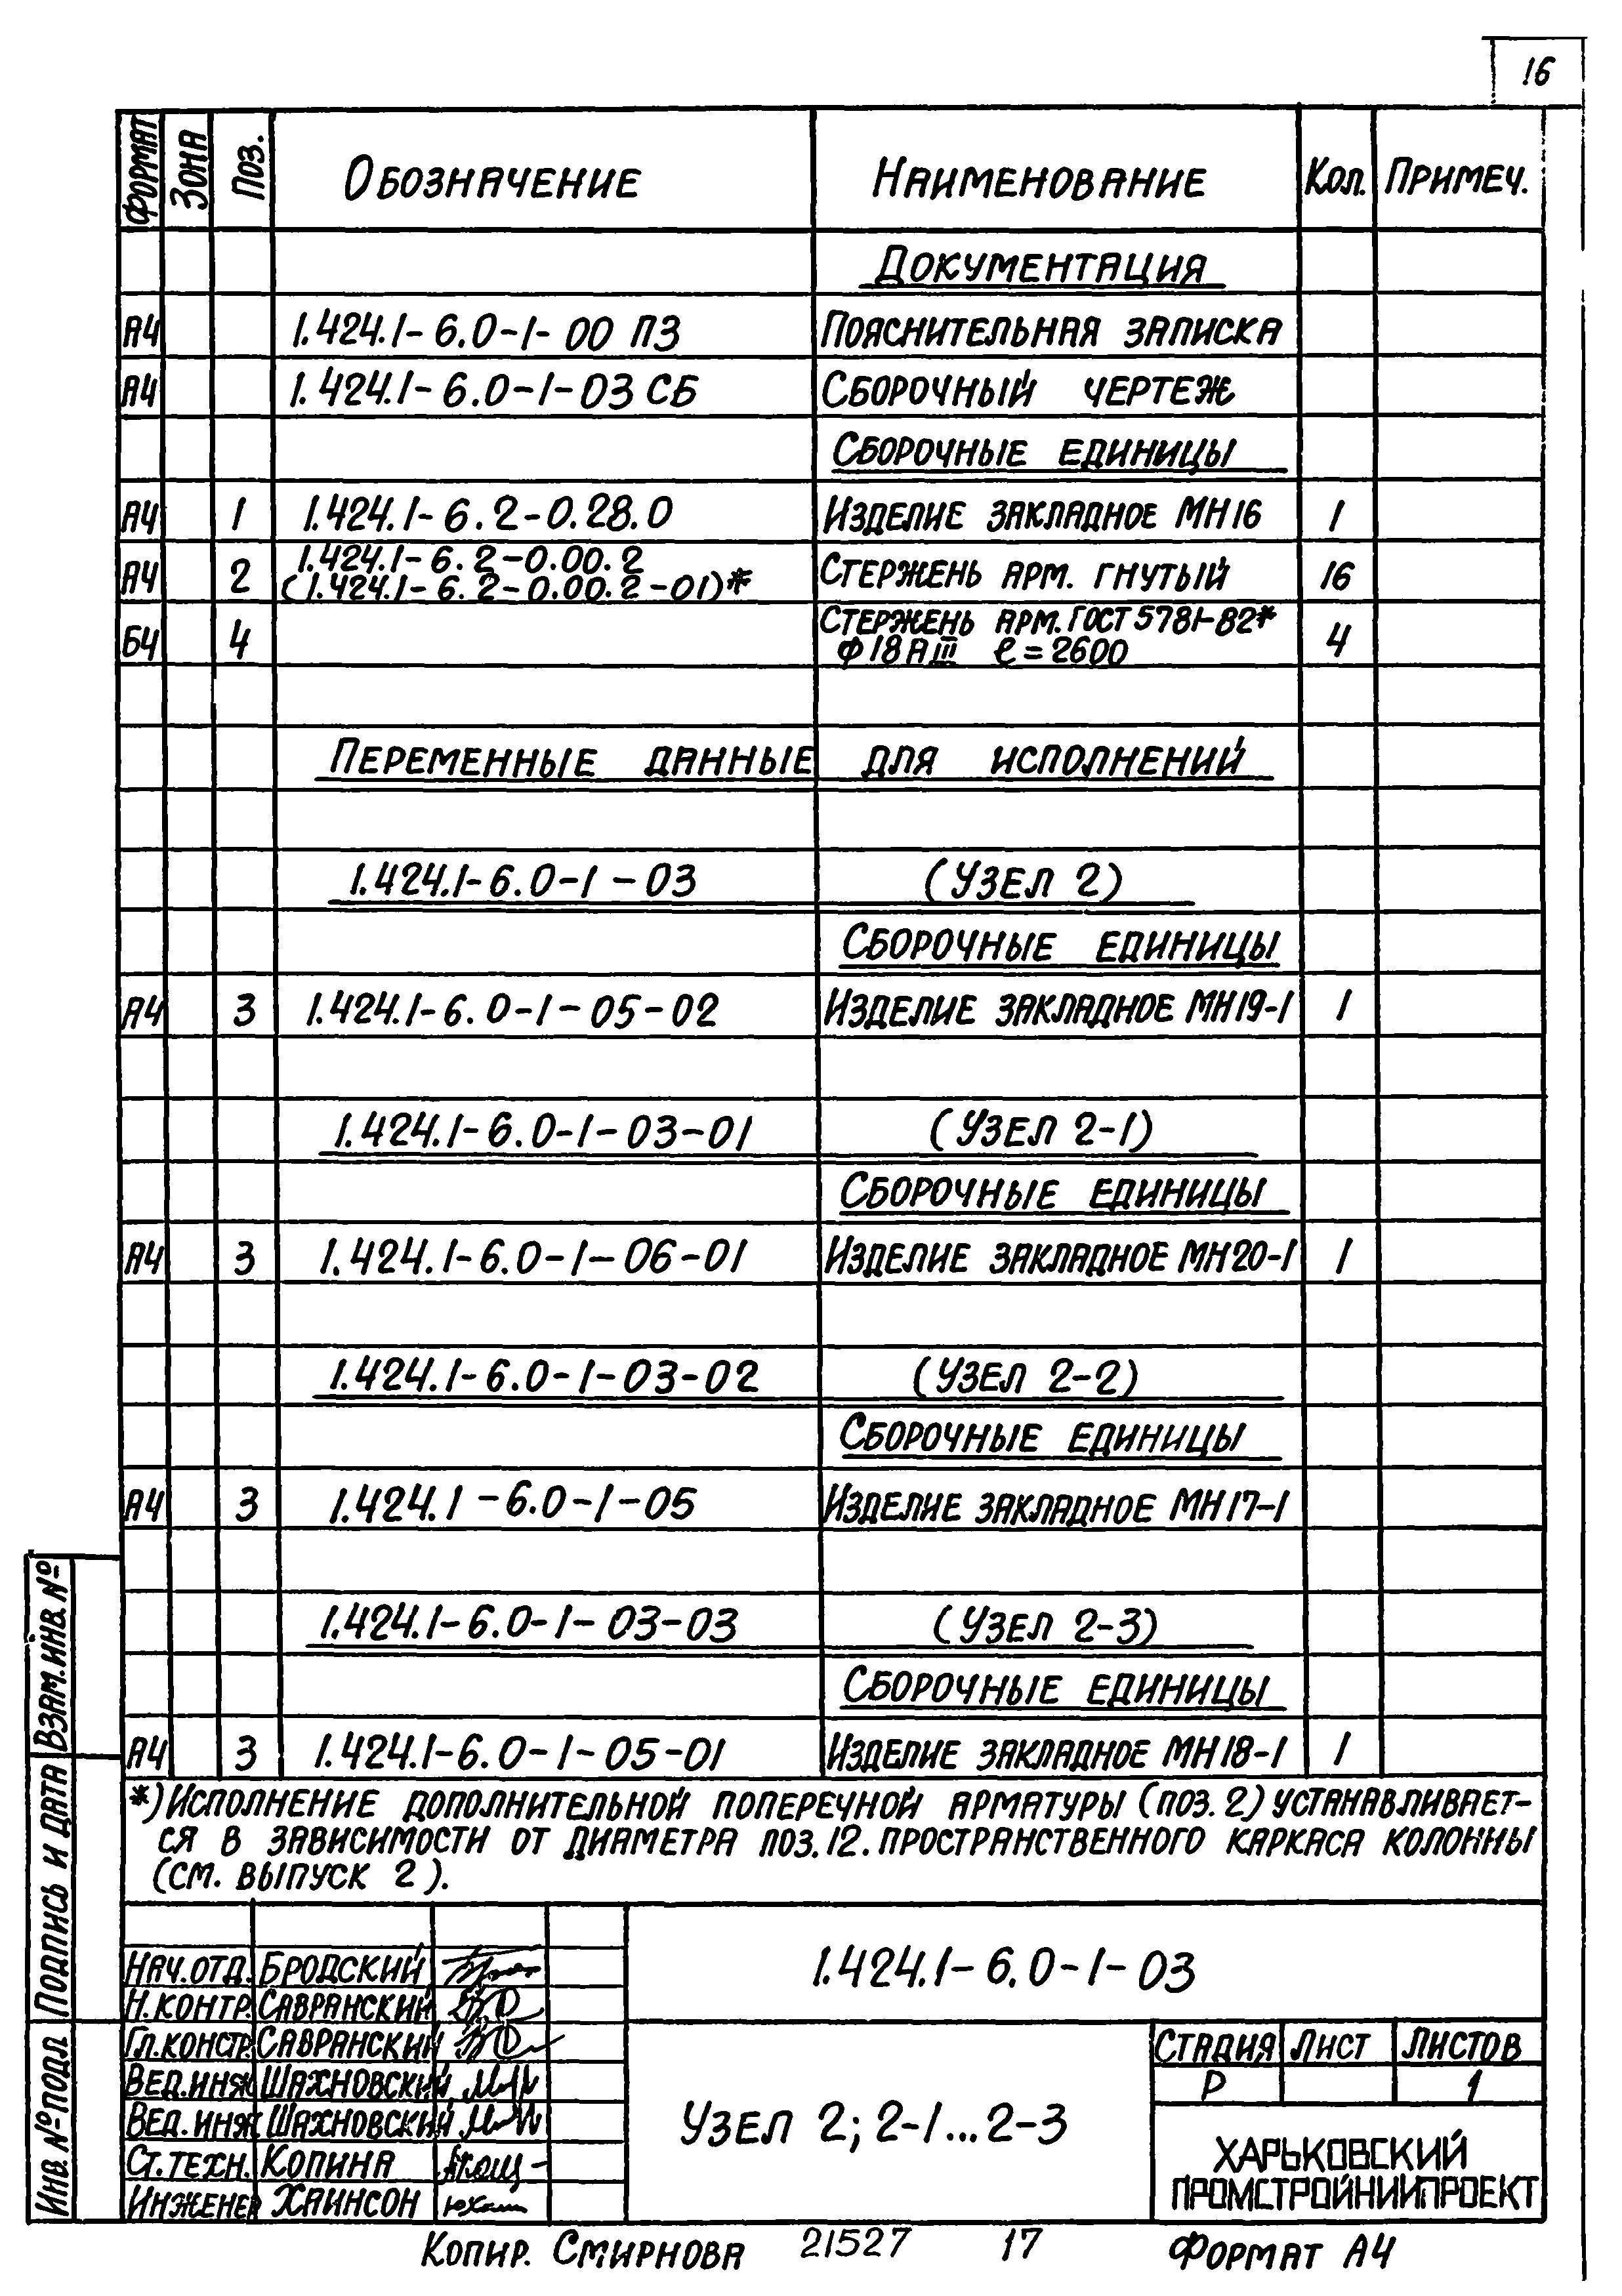 16
ФОРМАТ ЗОНА ПОЗ. ОБОЗНАЧЕНИЕ НАИМЕНОВАНИЕ КОЛ. ПРИМЕЧ.
ДОКУМЕНТАЦИЯ
А4 1.424.1-6.0-1-00 ПЗ ПОЯСНИТЕЛЬНАЯ ЗАПИСКА
А4 1.424.1-6.0-1-03 СБ СБОРОЧНЫЙ ЧЕРТЕЖ
СБОРОЧНЫЕ ЕДИНИЦЫ
А4 1 1.424.1-6.2-0.28.0 ИЗДЕЛИЕ ЗАКЛАДНОЕ МН16 1
А4 2 1.424.1-6.2-0.00.2 СТЕРЖЕНЬ АРМ. ГНУТЫЙ 16
(1.424.1-6.2-0.00.2-01)*
Б4 4 СТЕРЖЕНЬ АРМ. ГОСТ 5781-82* 4
Ф18АIII ℓ=2600
ПЕРЕМЕННЫЕ ДАННЫЕ ДЛЯ ИСПОЛНЕНИЙ
1.424.1-6.0-1-03 (УЗЕЛ 2)
СБОРОЧНЫЕ ЕДИНИЦЫ
А4 3 1.424.1-6.0-1-05-02 ИЗДЕЛИЕ ЗАКЛАДНОЕ МН19-1 1
1.424.1-6.0-1-03-01 (УЗЕЛ 2-1)
СБОРОЧНЫЕ ЕДИНИЦЫ
А4 3 1.424.1-6.0-1-06-01 ИЗДЕЛИЕ ЗАКЛАДНОЕ МН20-1 1
1.424.1-6.0-1-03-02 (УЗЕЛ 2-2)
СБОРОЧНЫЕ ЕДИНИЦЫ
А4 3 1.424.1-6.0-1-05 ИЗДЕЛИЕ ЗАКЛАДНОЕ МН17-1
1.424.1-6.0-1-03-03 (УЗЕЛ 2-3)
СБОРОЧНЫЕ ЕДИНИЦЫ
А4 3 1.424.1-6.0-1-05-01 ИЗДЕЛИЕ ЗАКЛАДНОЕ МН18-1 1
*) ИСПОЛНЕНИЕ ДОПОЛНИТЕЛЬНОЙ ПОПЕРЕЧНОЙ АРМАТУРЫ (ПОЗ. 2) УСТАНАВЛИВАЕТ-
СЯ В ЗАВИСИМОСТИ ОТ ДИАМЕТРА ПОЗ.12. ПРОСТРАНСТВЕННОГО КАРКАСА КОЛОННЫ
(СМ. ВЫПУСК 2).
НАЧ.ОТД. БРОДСКИЙ
Н.КОНТР. САВРАНСКИЙ
ГЛ.КОНСТР. САВРАНСКИЙ
ВЕД.ИНЖ ШАХНОВСКИЙ
ВЕД.ИНЖ. ШАХНОВСКИЙ
СТ.ТЕХН. КОПИНА
ИНЖЕНЕР ХАИНСОН
1.424.1-6.0-1-03
УЗЕЛ 2; 2-1...2-3
СТАДИЯ ЛИСТ ЛИСТОВ
Р 1
ХАРЬКОВСКИЙ
ПРОМСТРОЙНИИПРОЕКТ
ИНВ. № ПОДЛ ПОДПИСЬ И ДАТА ВЗАМ.ИНВ. №
КОПИР. СМИРНОВА 21527 17 ФОРМАТ А4